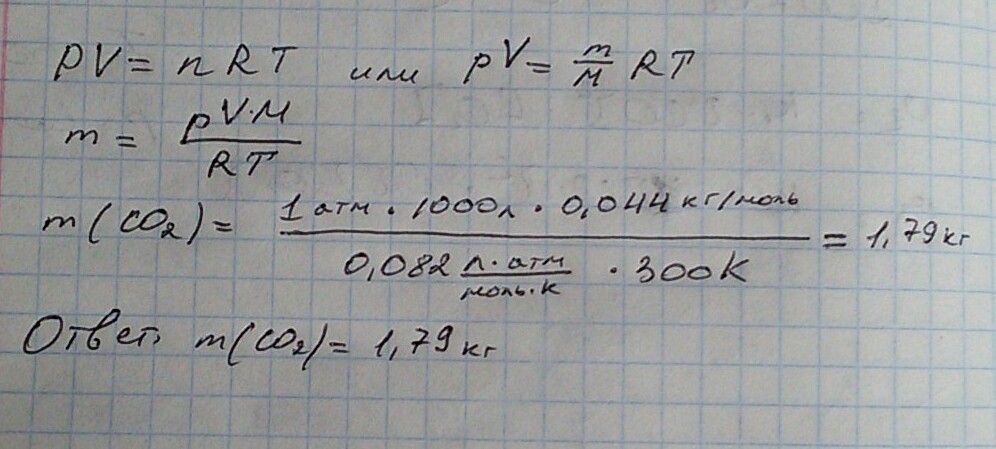 PV = nRT или pV = m/M RT
m = pV·M / RT
m(CO₂) = 1 атм · 1000л · 0,044 кг/моль / 0,082 л·атм/моль·К · 300К = 1,79 кг
Ответ, m(CO₂) = 1,79 кг